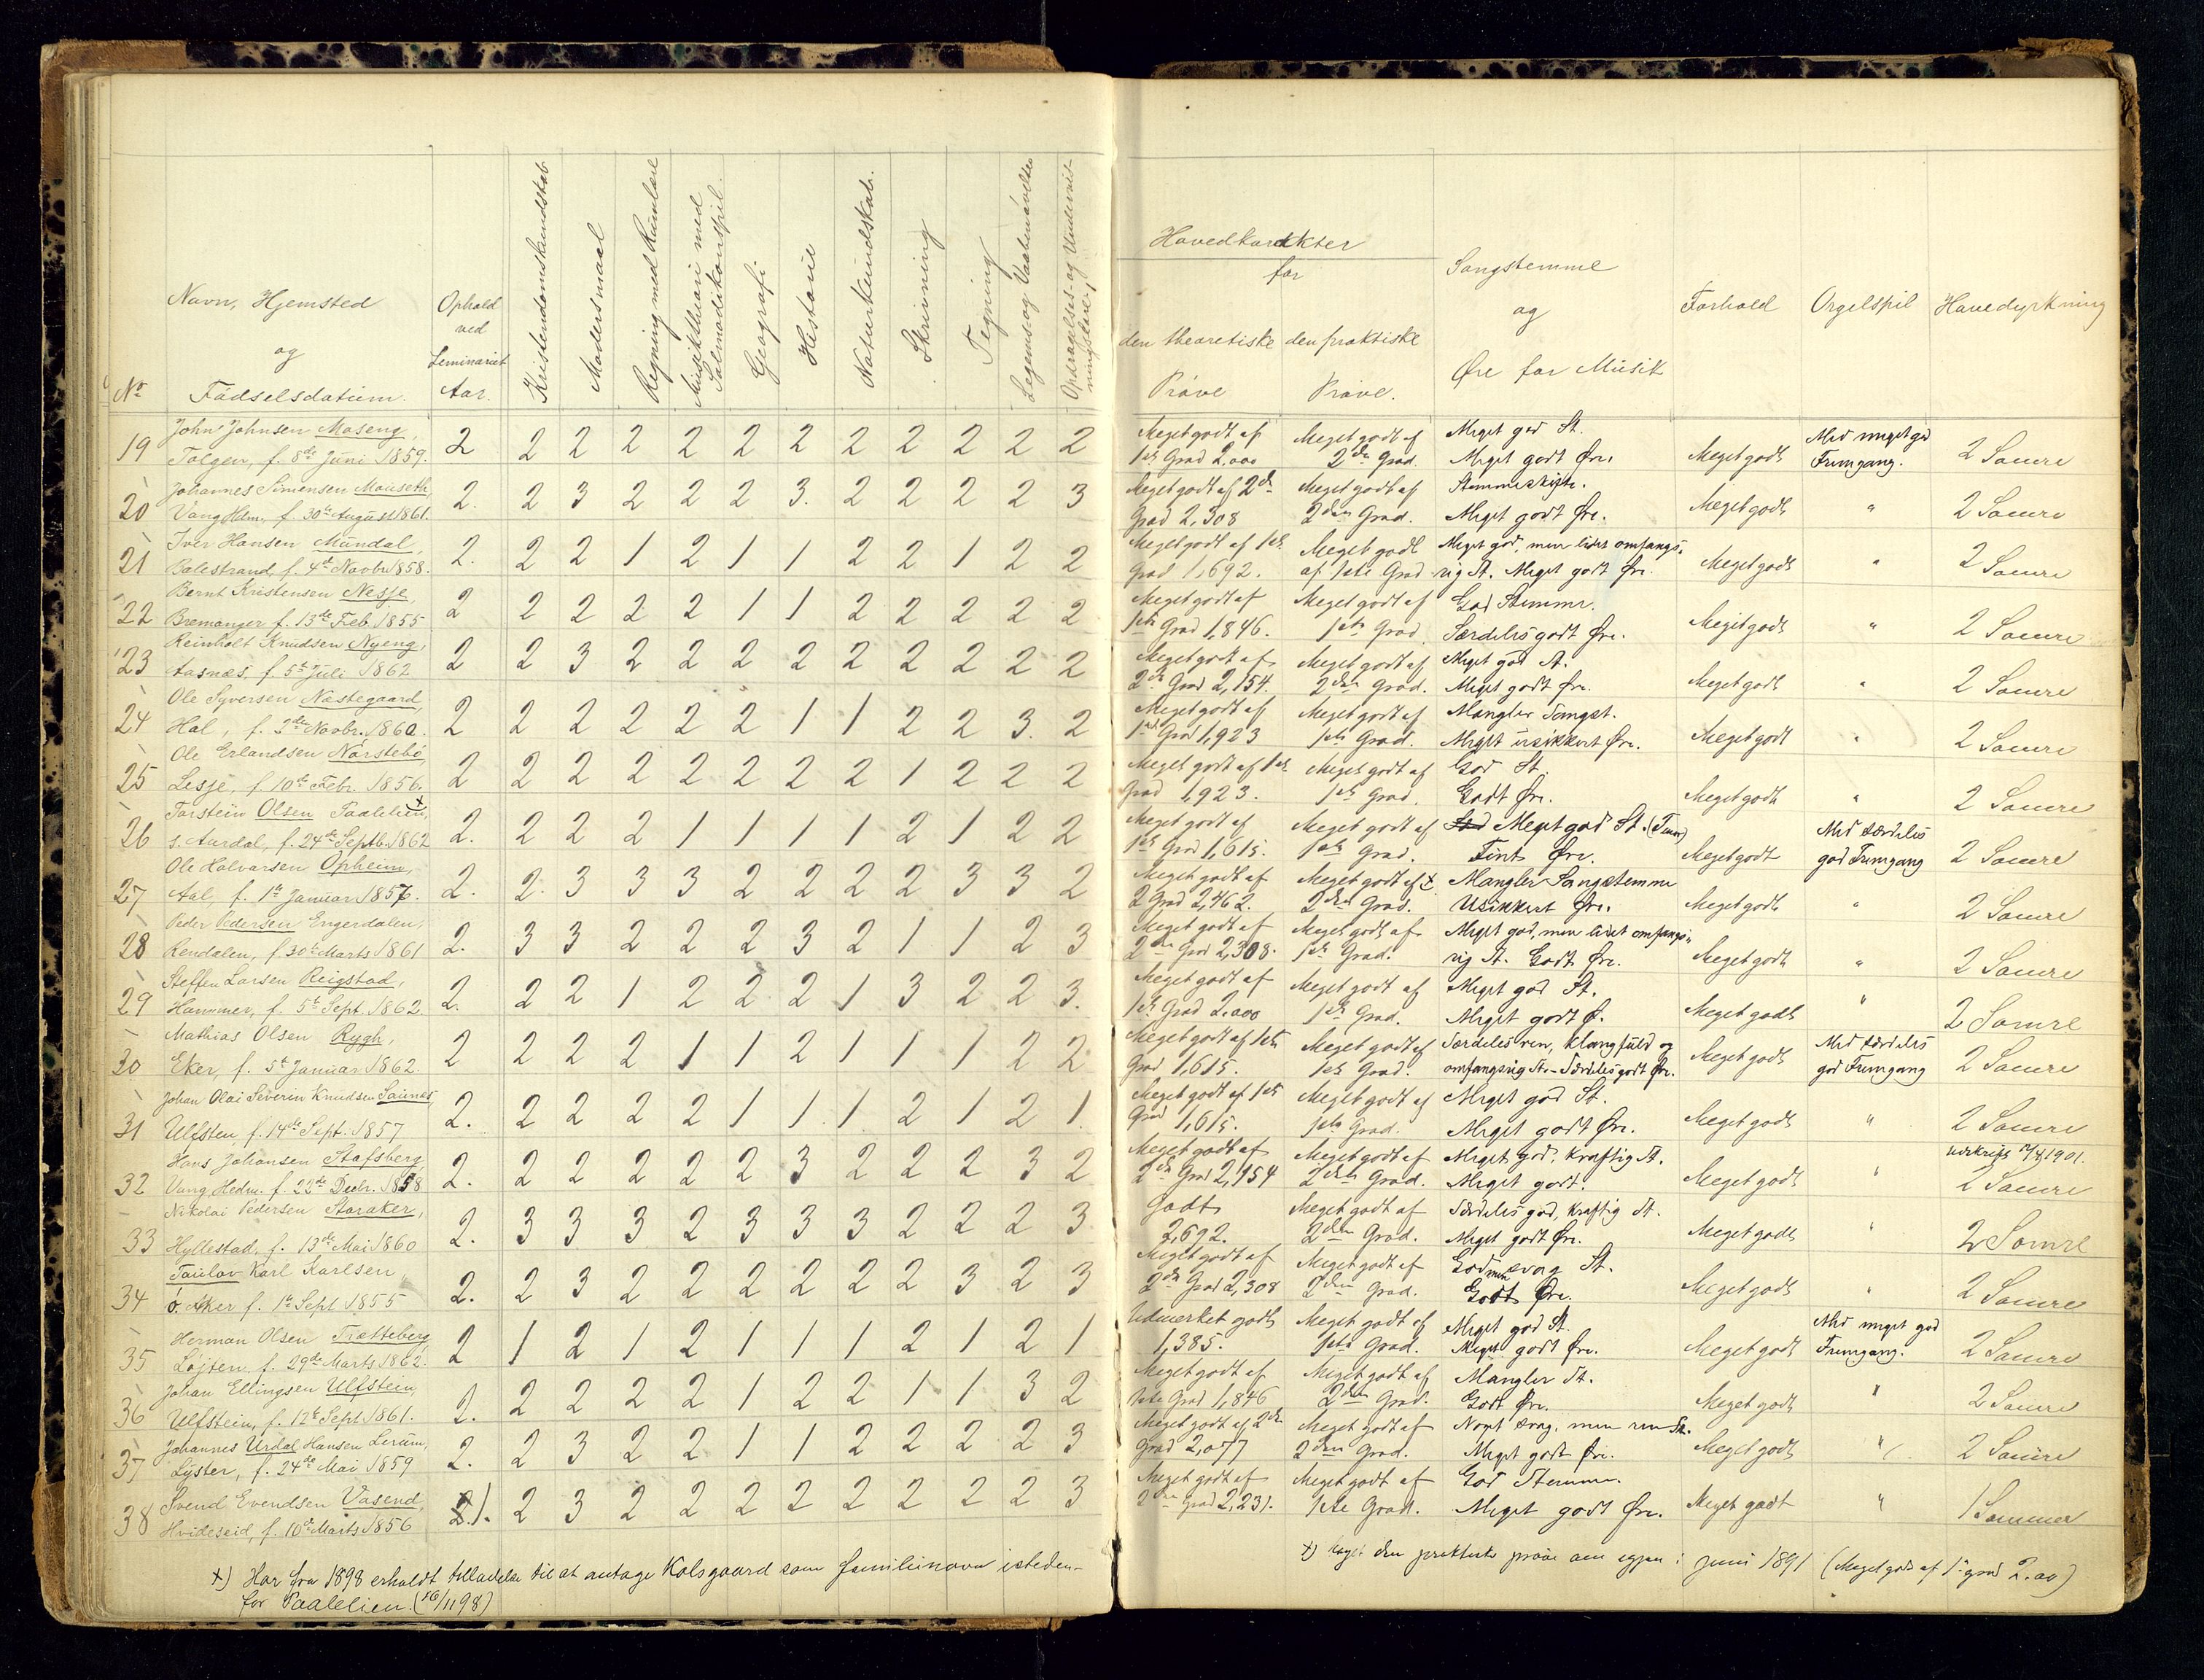 No
Navn, Hjemsted
og
Fødselsdatum.
Ophold
ved
Seminariet
Aar.
Kristendomskundskab
Modersmaal
Regning med Rumlære
Musiktheori med
Salmodikonspil.
Geografi
Historie
Naturkundskab.
Skrivning
Tegning
Legems- og Vaabenøvelser
Opdragelses- og Undervis-
ningslære
Hovedkarakter
for
den theoretiske den praktiske
Prøve Prøve.
Sangstemme
og
Øre for Musik
Forhold
Orgelspil
Havedyrkning
19 John Johnsen Moseng, Tolgen, f. 8de Juni 1859. 2 2 2 2 2 2 2 2 2 2 2 2 Meget godt af 1ste Grad 2,000 Meget godt af 2den Grad. Meget god St. Meget godt Øre. Meget godt Med meget god Fremgang. 2 Somre
20 Johannes Simensen Mouseth, Vang Hedm. f. 30te August 1861. 2. 2 3 2 2 2 3. 2 2 2 2 3 Meget godt af 2den Grad 2,308 Meget godt af 2den Grad. Meget godt Øre. Meget godt " 2 Somre
21 Iver Hansen Mundal, Balestrand, f. 4de Novbr. 1858. 2. 2 2 1 2 1 1 2 2 1 2 2 Meget godt af 1ste Grad 1,692. Meget godt af 1ste Grad Meget god, men lidet omfangsrig St. Meget godt Øre. Meget godt " 2 Somre
22 Bernt Kristensen Nesje, Bremanger f. 13de Feb. 1855 2 2 2 2 2 1 1 2 2 2 2 2 Meget godt af 1ste Grad 1,846. Meget godt af 1ste Grad God Stemme. Særdeles godt Øre. Meget godt " 2 Somre
23 Reinholt Knudsen Nyeng, Aasnæs, f. 5te Juli 1862 2 2 3 2 2 2 2 2 2 2 2 2 Meget godt af 2den Grad 2,154. Meget godt af 2den Grad. Meget god St. Meget godt Øre. Meget godt " 2 Somre
24 Ole Syversen Næstegaard, Hol, f. 2den Novbr. 1860. 2 2 2 2 2 2 1 1 2 2 3. 2 Meget godt af 1ste Grad 1,923 Meget godt af 1ste Grad. Mangler Sangst. Meget usikkert Øre. Meget godt " 2 Somre
25 Ole Erlandsen Norstebø, Lesje, f. 10de Febr. 1856. 2 2 2 2 2 2 2 2 1 2 2 2 Meget godt af 1ste Grad 1,923. Meget godt af 1ste Grad. God St. Godt Øre. Meget godt " 2 Somre
26 Torstein Olsen Paalelien, x s. Aurdal, f. 24de Septb. 1862 2. 2 2 2 1 1 1 1 2 1 2 2 Meget godt af 1ste Grad 1,615. Meget godt af 1ste Grad. God Meget god St. (Tenor) Fint Øre. Meget godt Med særdeles god Fremgang 2 Somre
27 Ole Halvorsen Opheim, Aal, f. 1ste Januar 1857. 2. 2. 3 3 3 2 2 2 2 3 3 2 Meget godt af 2 Grad 2,462. Meget godt af x 2den Grad. Mangler Sangstemme Usikkert Øre. Meget godt " 2 Somre
28 Peder Pedersen Engerdalen, Rendalen, f. 30te Marts 1861 2. 3 3 2 2 2 3 2 1 1 2 3 Meget godt af 2den Grad 2,308. Meget godt af 1ste Grad. Meget god, men lidet omfangsrig St. Godt Øre. Meget godt " 2 Somre
29 Steffen Larsen Reigstad, Hammer, f. 5te Sept. 1862. 2. 2 2 1 2 2 2 1 3 2 2 3. Meget godt af 1ste Grad 2.000 Meget godt af 1ste Grad. Meget god St. Meget godt Ø. Meget godt " 2 Somre
30 Mathias Olsen Rygh, Eker, f. 5te Januar 1862. 2 2 2 2 1 1 2 1 1 1 2 2 Meget godt af 1ste Grad 1,615. Meget godt af 1ste Grad. Særdeles ren, klangfuld og omfangsrig St. - Særdeles godt Øre. Meget godt Med særdeles god Fremgang 2 Somre
31 Johan Olai Severin Knudsen Saunes, Ulfsten, f. 14de Sept. 1857 2. 2 2 2 2 1 1 1 2 1 2 1. Meget godt af 1ste Grad 1,615. Meget godt af 1ste Grad. Meget god St. Meget godt Øre. Meget godt " 2 Somre
32 Hans Johansen Stafsberg, Vang Hedm. f. 22de Decbr. 1858 2. 2 2 2 2 2 3 2 2 2 3 2 Meget godt af 2den Grad 2,154 Meget godt af 2den Grad. Meget god, kraftig St. Meget godt. Meget godt " 1901. 2 Somre
33 Nikolai Pedersen Storaker, Hyllestad, f. 13de Mai 1860 2. 3 3 3 2 3 3 3 2 2 2 3 Godt 2,692. Meget godt af 2den Grad. Særdeles god, kraftig St. Meget godt Øre. Meget godt " 2 Somre
34 Taulov Karl Karlsen ø. Aker f. 1ste Sept 1855 2. 2 3 2 2 2 2 2 2 3 2 3 Meget godt af 2den Grad 2,308 Meget godt af 2den Grad. God men svag St. Godt Øre. Meget godt " 2 Somre
35 Herman Olsen Trætteberg, Løjten, f. 29de Marts 1862. 2 1 2 1 2 1 1 1 2 1 2 1 Udmerket godt 1,385. Meget godt af 1ste Grad. Meget god St. Meget godt Øre. Meget godt Med meget god Fremgang. 2 Somre
36 Johan Ellingsen Ulfstein, Ulfstein, f. 12te Sept 1861. 2. 2 2 2 2 1 2 2 1 1 3 2 Meget godt af 1ste Grad 1,846 Meget godt af 2den Grad. Mangler St. Godt Øre. Meget godt " 2 Somre
37 Johannes Urdal Hansen Lerum, Lyster, f. 24de Mai 1859 2. 2 3 2 2 1 1 2 2 2 2 3 Meget godt af 2den Grad 2,077 Meget godt af 2den Grad. Noget svag, men ren St. Meget godt Øre. Meget godt " 2 Somre
38 Svend Evendsen Vasend, Hvideseid, f. 10de Marts 1856 2. 1. 2 3 2 2 2 2 2 2 2 2 3 Meget godt af 2den Grad 2,231. Meget godt af 1ste Grad. God Stemme. Meget godt Øre. Meget godt " 1 Sommer
x) Har fra 1898 erholdt tilladelse til at antage Kolsgaard som familienavn isteden-
for Paalelien. (16/11 98)
x) den praktiske prøve om igjen i juni 1891 (Meget godt af 1ste grad 2.00)